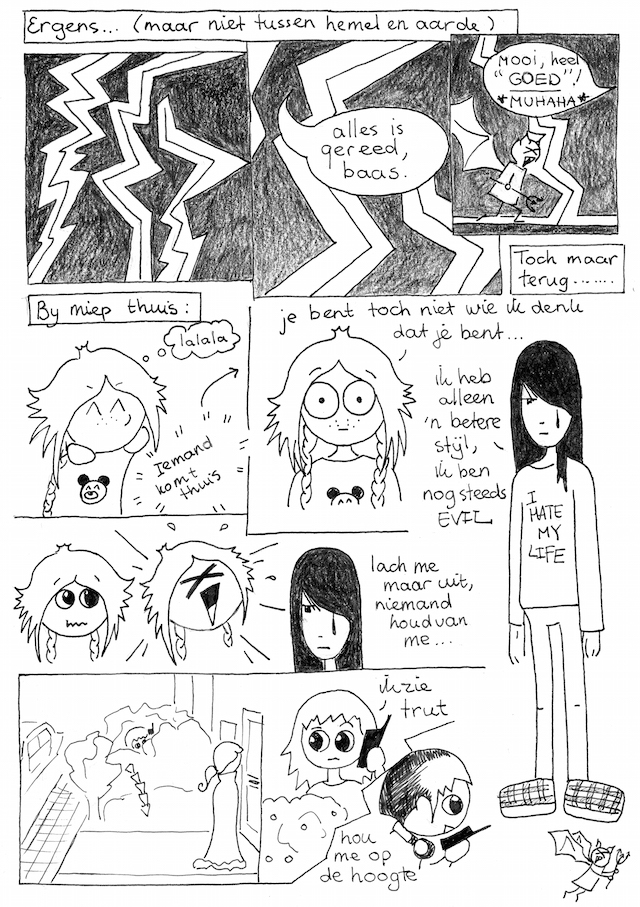 Ergens... (maar niet tussen hemel en aarde)
alles is
gereed,
baas.
Mooi, heel
"GOED"!
*MUHAHA*
Toch maar
terug.......
By miep thuis:
lalala
Iemand
komt
thuis
je bent toch niet wie ik denk
dat je bent...
ik heb
alleen
'n betere
stijl,
ik ben
nog steeds
EVIL
I
HATE
MY
LIFE
lach me
maar uit,
niemand
houd van
me...
ik zie
trut
hou
me op
de hoogte